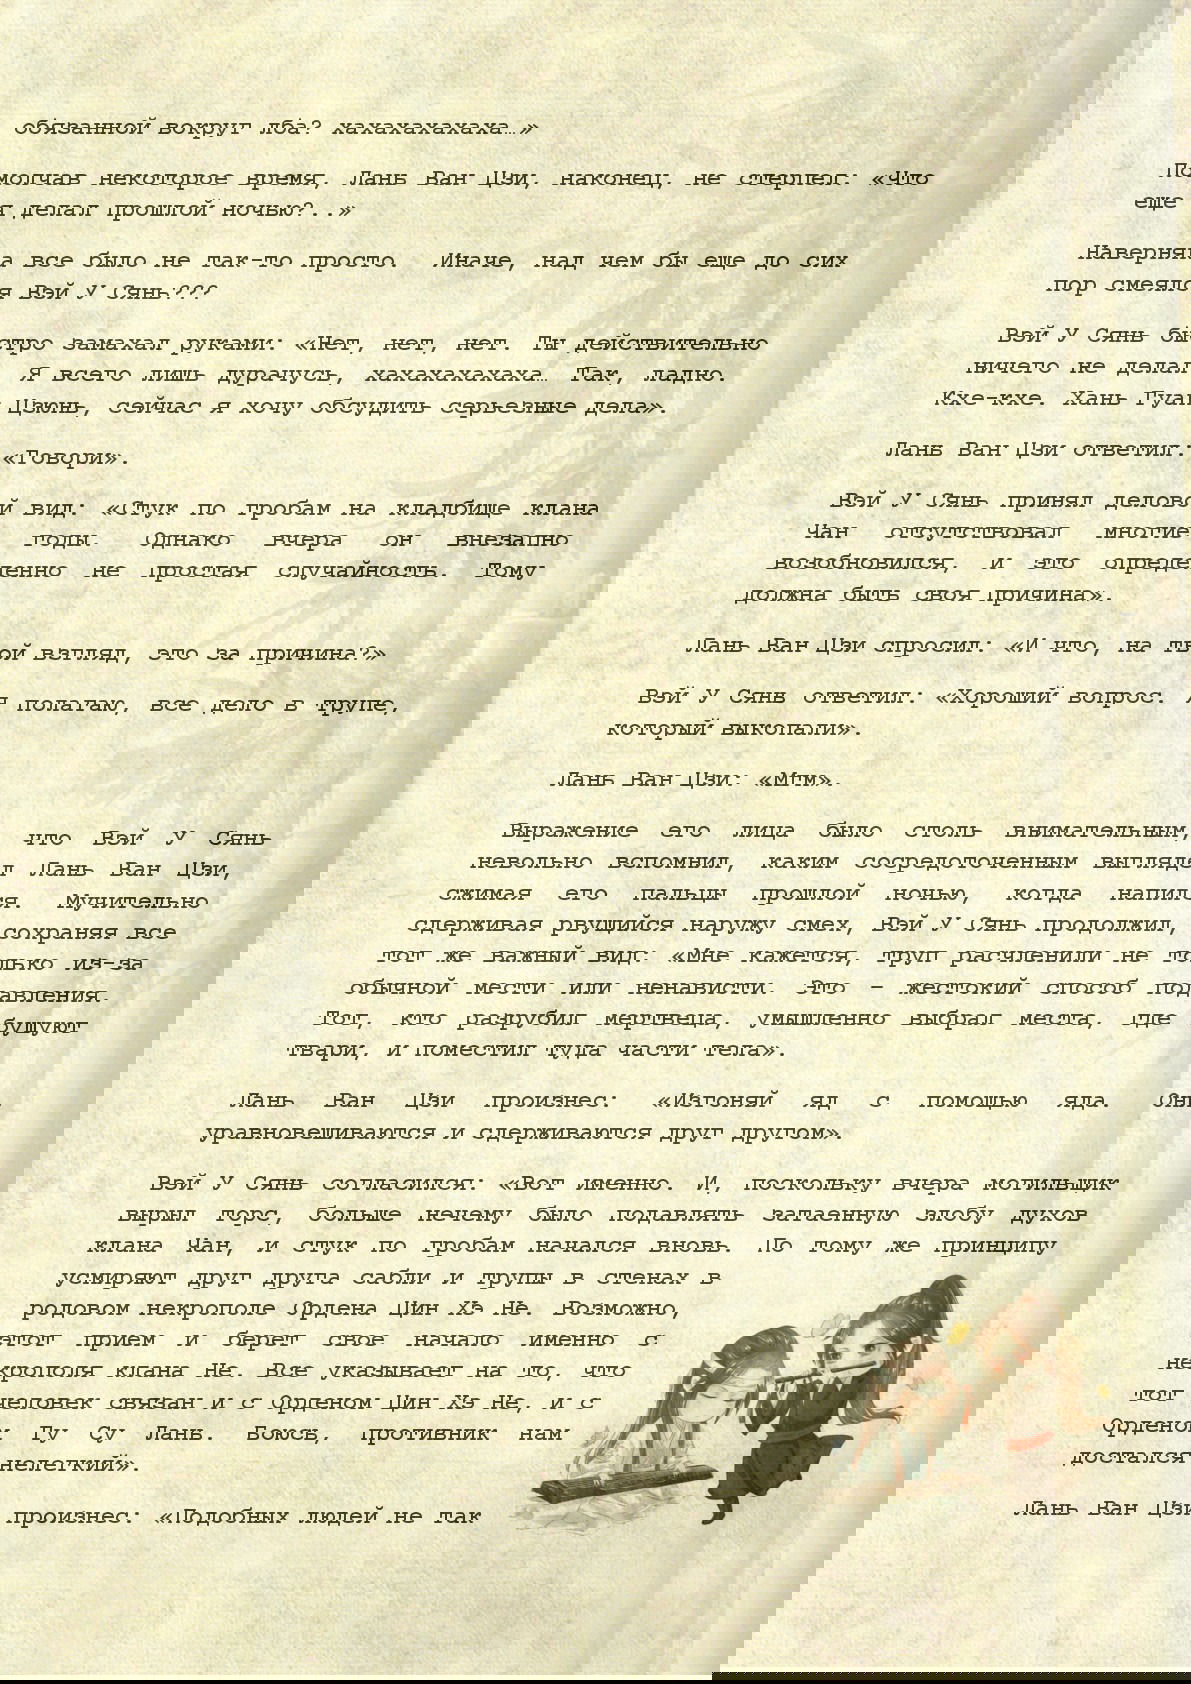 обязанной вокруг лба? хахахахахаха…»
Помолчав некоторое время, Лань Ван Цзи, наконец, не стерпел: «Что
еще я делал прошлой ночью?..»
Наверняка все было не так-то просто. Иначе, над чем бы еще до сих
пор смеялся Вэй У Сянь???
Вэй У Сянь быстро замахал руками: «Нет, нет, нет. Ты действительно
ничего не делал. Я всего лишь дурачусь, хахахахахаха… Так, ладно.
Кхе-кхе. Хань Гуан Цзюнь, сейчас я хочу обсудить серьезные дела».
Лань Ван Цзи ответил: «Говори».
Вэй У Сянь принял деловой вид: «Стук по гробам на кладбище клана
Чан отсутствовал многие годы. Однако вчера он внезапно
возобновился, и это определенно не простая случайность. Тому
должна быть своя причина».
Лань Ван Цзи спросил: «И что, на твой взгляд, это за причина?»
Вэй У Сянь ответил: «Хороший вопрос. Я полагаю, все дело в трупе,
который выкопали».
Лань Ван Цзи: «Мгм».
Выражение его лица было столь внимательным, что Вэй У Сянь
невольно вспомнил, каким сосредоточенным выглядел Лань Ван Цзи,
сжимая его пальцы прошлой ночью, когда напился. Мучительно
сдерживая рвущийся наружу смех, Вэй У Сянь продолжил, сохраняя все
тот же важный вид: «Мне кажется, труп расчленили не только из-за
обычной мести или ненависти. Это – жестокий способ подавления.
Тот, кто разрубил мертвеца, умышленно выбрал места, где бушуют
твари, и поместил туда части тела».
Лань Ван Цзи произнес: «Изгоняй яд с помощью яда. Они
уравновешиваются и сдерживаются друг другом».
Вэй У Сянь согласился: «Вот именно. И, поскольку вчера могильщик
вырыл торс, больше нечему было подавлять затаенную злобу духов
клана Чан, и стук по гробам начался вновь. По тому же принципу
усмиряют друг друга сабли и трупы в стенах в
родовом некрополе Ордена Цин Хэ Не. Возможно,
этот прием и берет свое начало именно с
некрополя клана Не. Все указывает на то, что
тот человек связан и с Орденом Цин Хэ Не, и с
Орденом Гу Су Лань. Боюсь, противник нам
достался нелегкий».
Лань Ван Цзи произнес: «Подобных людей не так